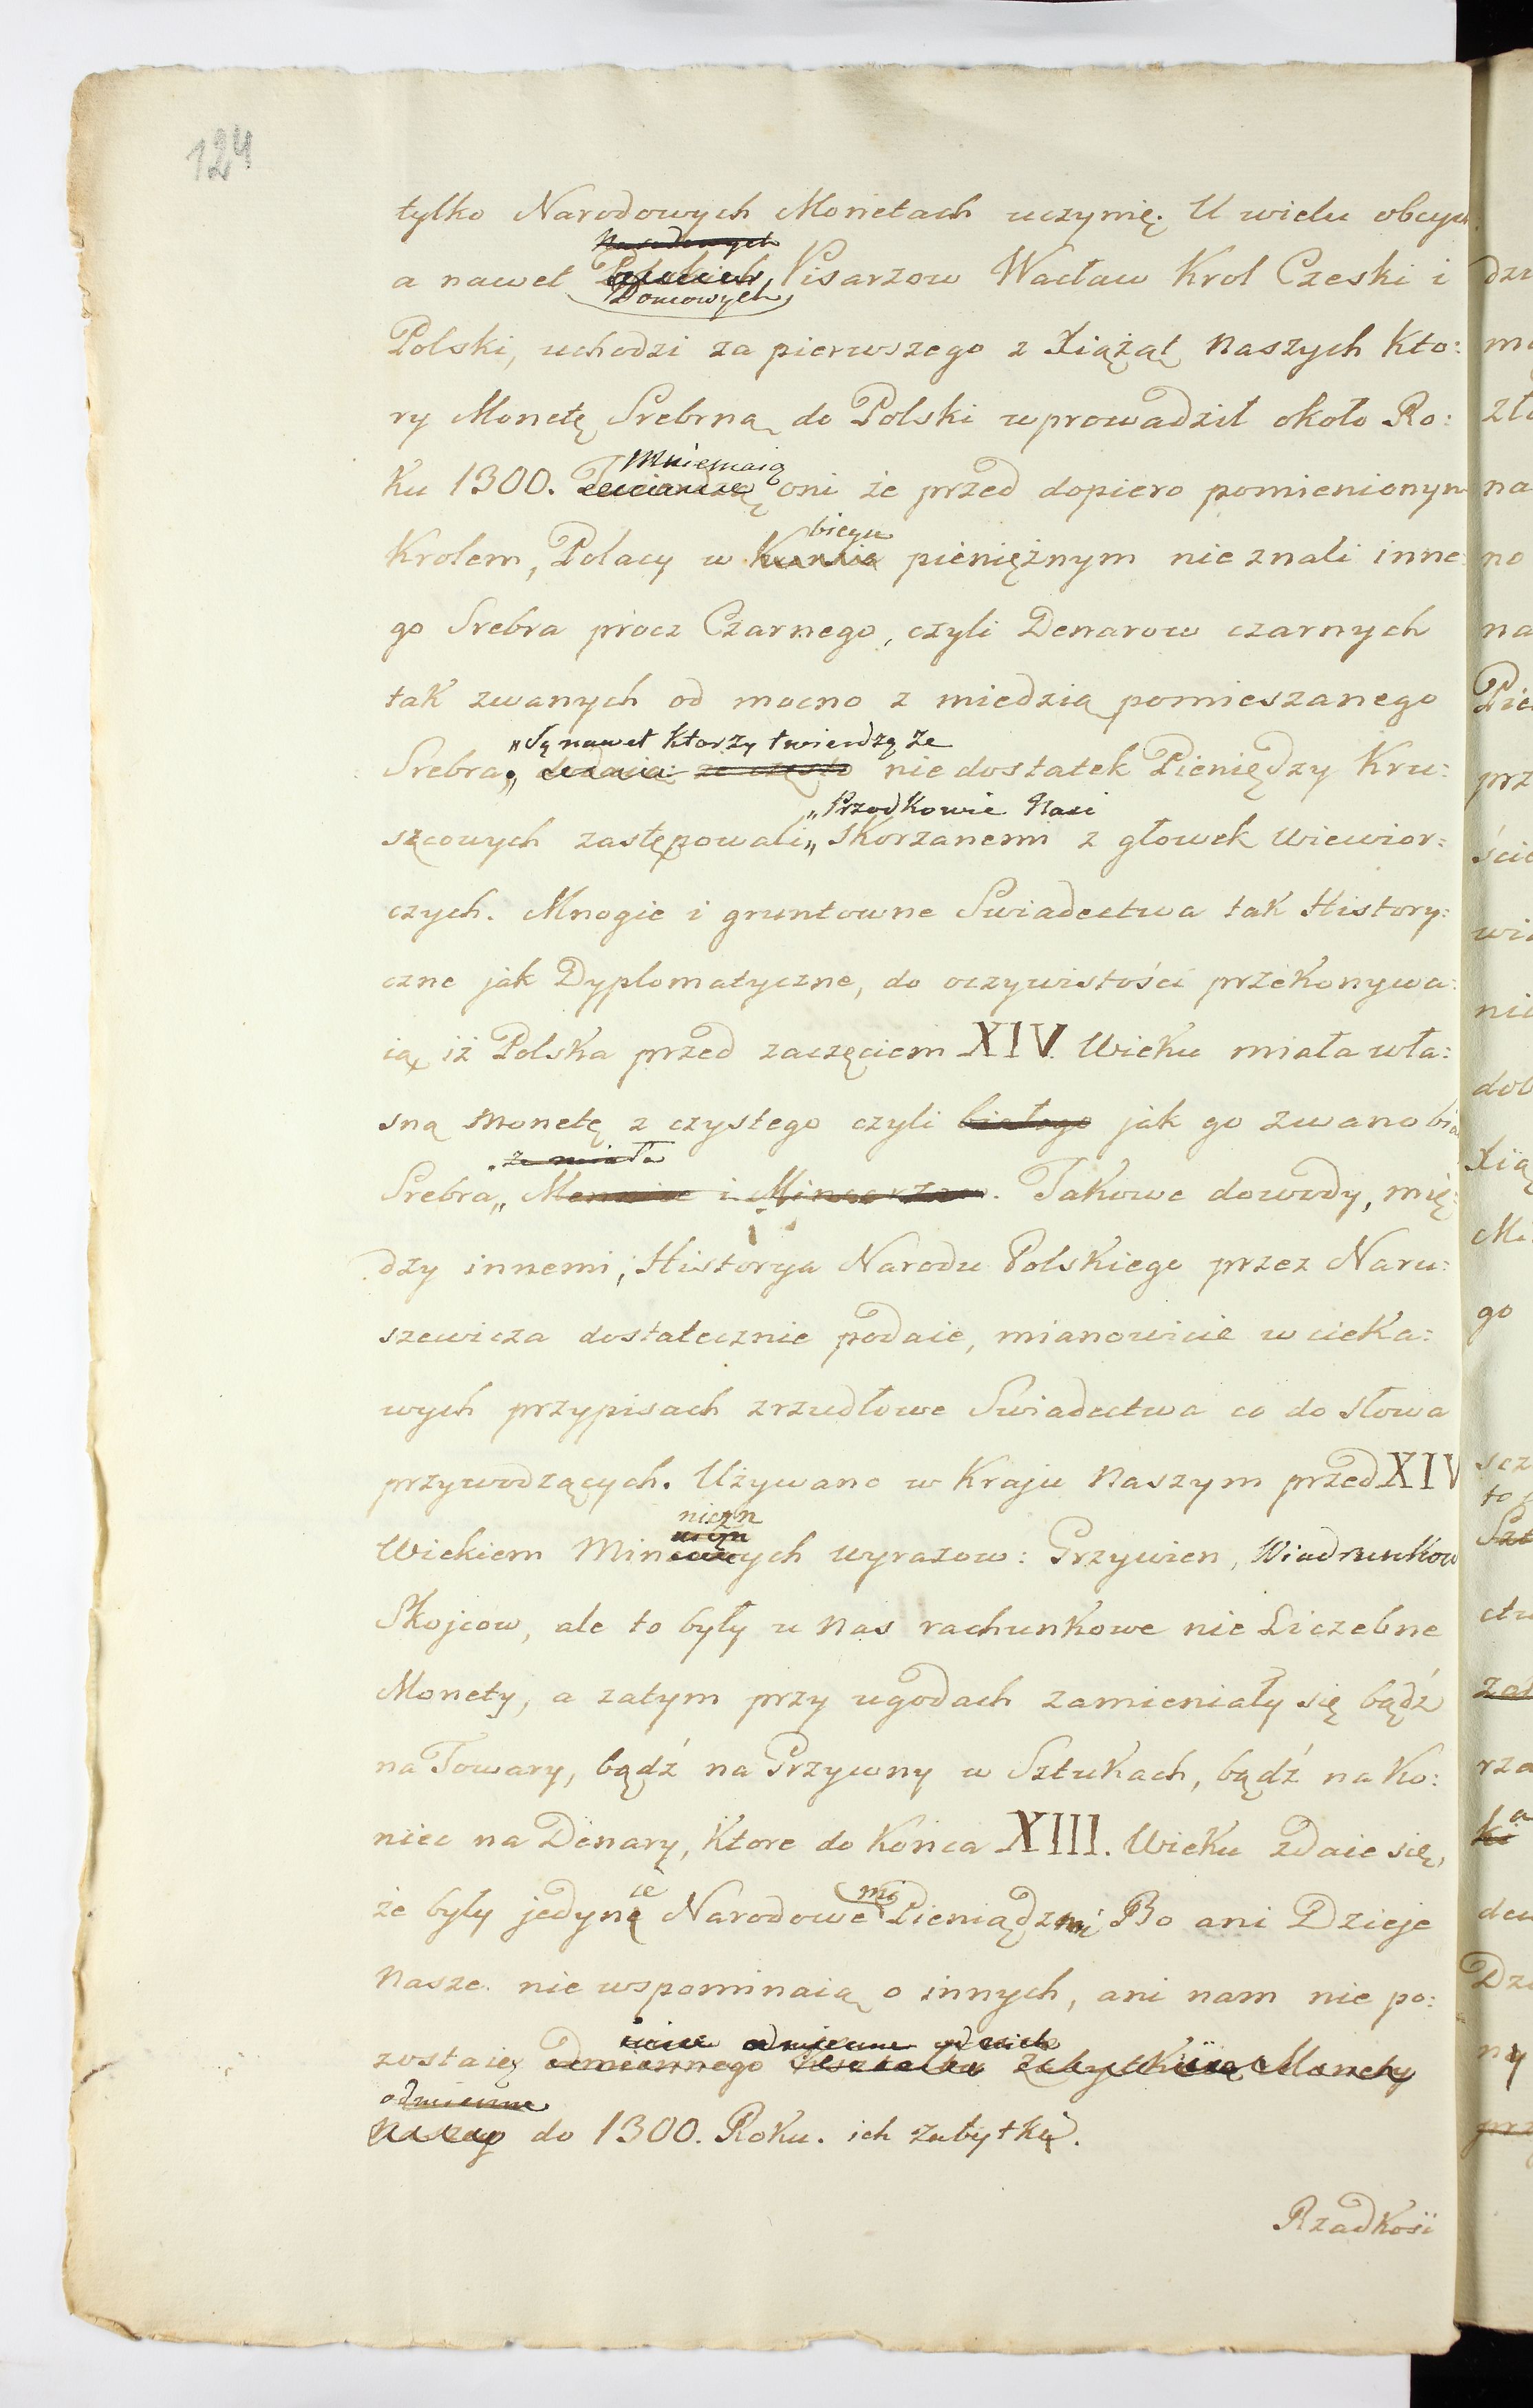 124
tylko Narodowych Monetach uczynię. U wielu obcych
Narodowych
a nawet Polskich Pisarzow Wacław Krol Czeski i
Domowych
Polski, uchodzi za pierwszego z Xiążąt naszych kto:
ry Monetę Srebrną do Polski wprowadził około Ro:
Mniemaią
ku 1300. Twierdzą oni że przed dopiero pomienionym
biegu
Krolem, Polacy w Kursie pieniężnym nie znali inne:
go Srebra procz Czarnego, czyli Denarow czarnych
tak zwanych od mocno z miedzią pomieszanego
„Są nawet ktorzy twierdzą że
Srebra„ że często nie dostatek Pieniędzy Kru:
„Przodkowie Nasi
szcowych zastępowali„ skorzanemi z głowek wiewior:
czych. Mnogie i gruntowne Swiadectwa tak History:
czne jak Dyplomatyczne, do oczywistości przekonywa:
ią iż Polska przed zaczęciem XIV. Wieku miała wła:
sną Monetę z czystego czyli białego jak go zwano bia
że miała
Srebra„ Mennice i Mincarzow. Takowe dowody, mię:
dzy innemi, Historya Narodu Polskiego przez Naru:
szewicza dostatecznie podaie, mianowicie w cieka:
wych przypisach zrzudłowe Swiadectwa co do słowa
przywodzących. Używano w Kraju Naszym przed XIV
niczn
Wiekiem Min ych wyrazow: Grzywien, Wiadrunkow
Skojcow, ale to były u nas rachunkowe nie Liczebne
Monety, a zatym przy ugodach zamieniały się bądź
na Towary, bądź na Grzywny w Sztukach, bądź na ko:
niec na Denary, ktore do końca XIII. Wieku zdaie się,
ie mi
że były jedyne Narodowe Pieniądzmi Bo ani Dzieje
Nasze nie wspominaią o innych, ani nam nie po:
odmienne od nich
zostaię odmiennego kształtu zabytkiią Monety
odmienne
naszey do 1300. Roku. ich zabytki.
Rzadkośi